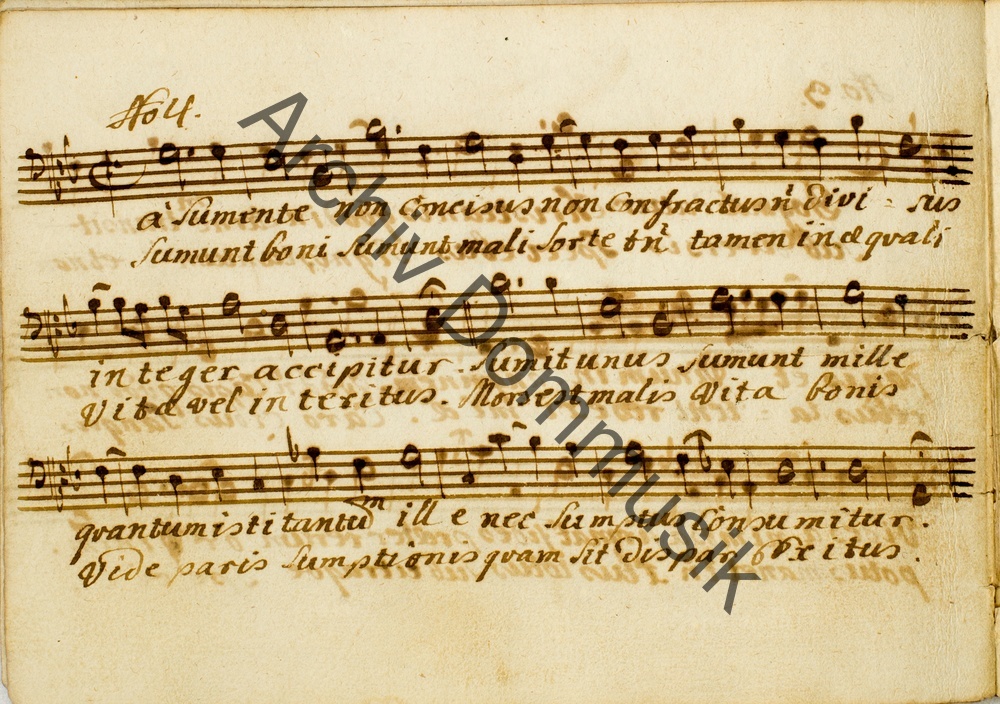 No 4.
à Sumente non Concisus non Confractus nˀ divi - sus
Sumunt boni Sumunt mali Sorte tñ tamen inæquali
integer accipitur. Sumit unus Sumunt mille
Vita vel interitus. Mors est malis Vita bonis
quantum isti tantũ ille nec Sumptus Consumitur.
Vide paris Sumptionis quam Sit dispar Exitus.
Archiv Dommusik